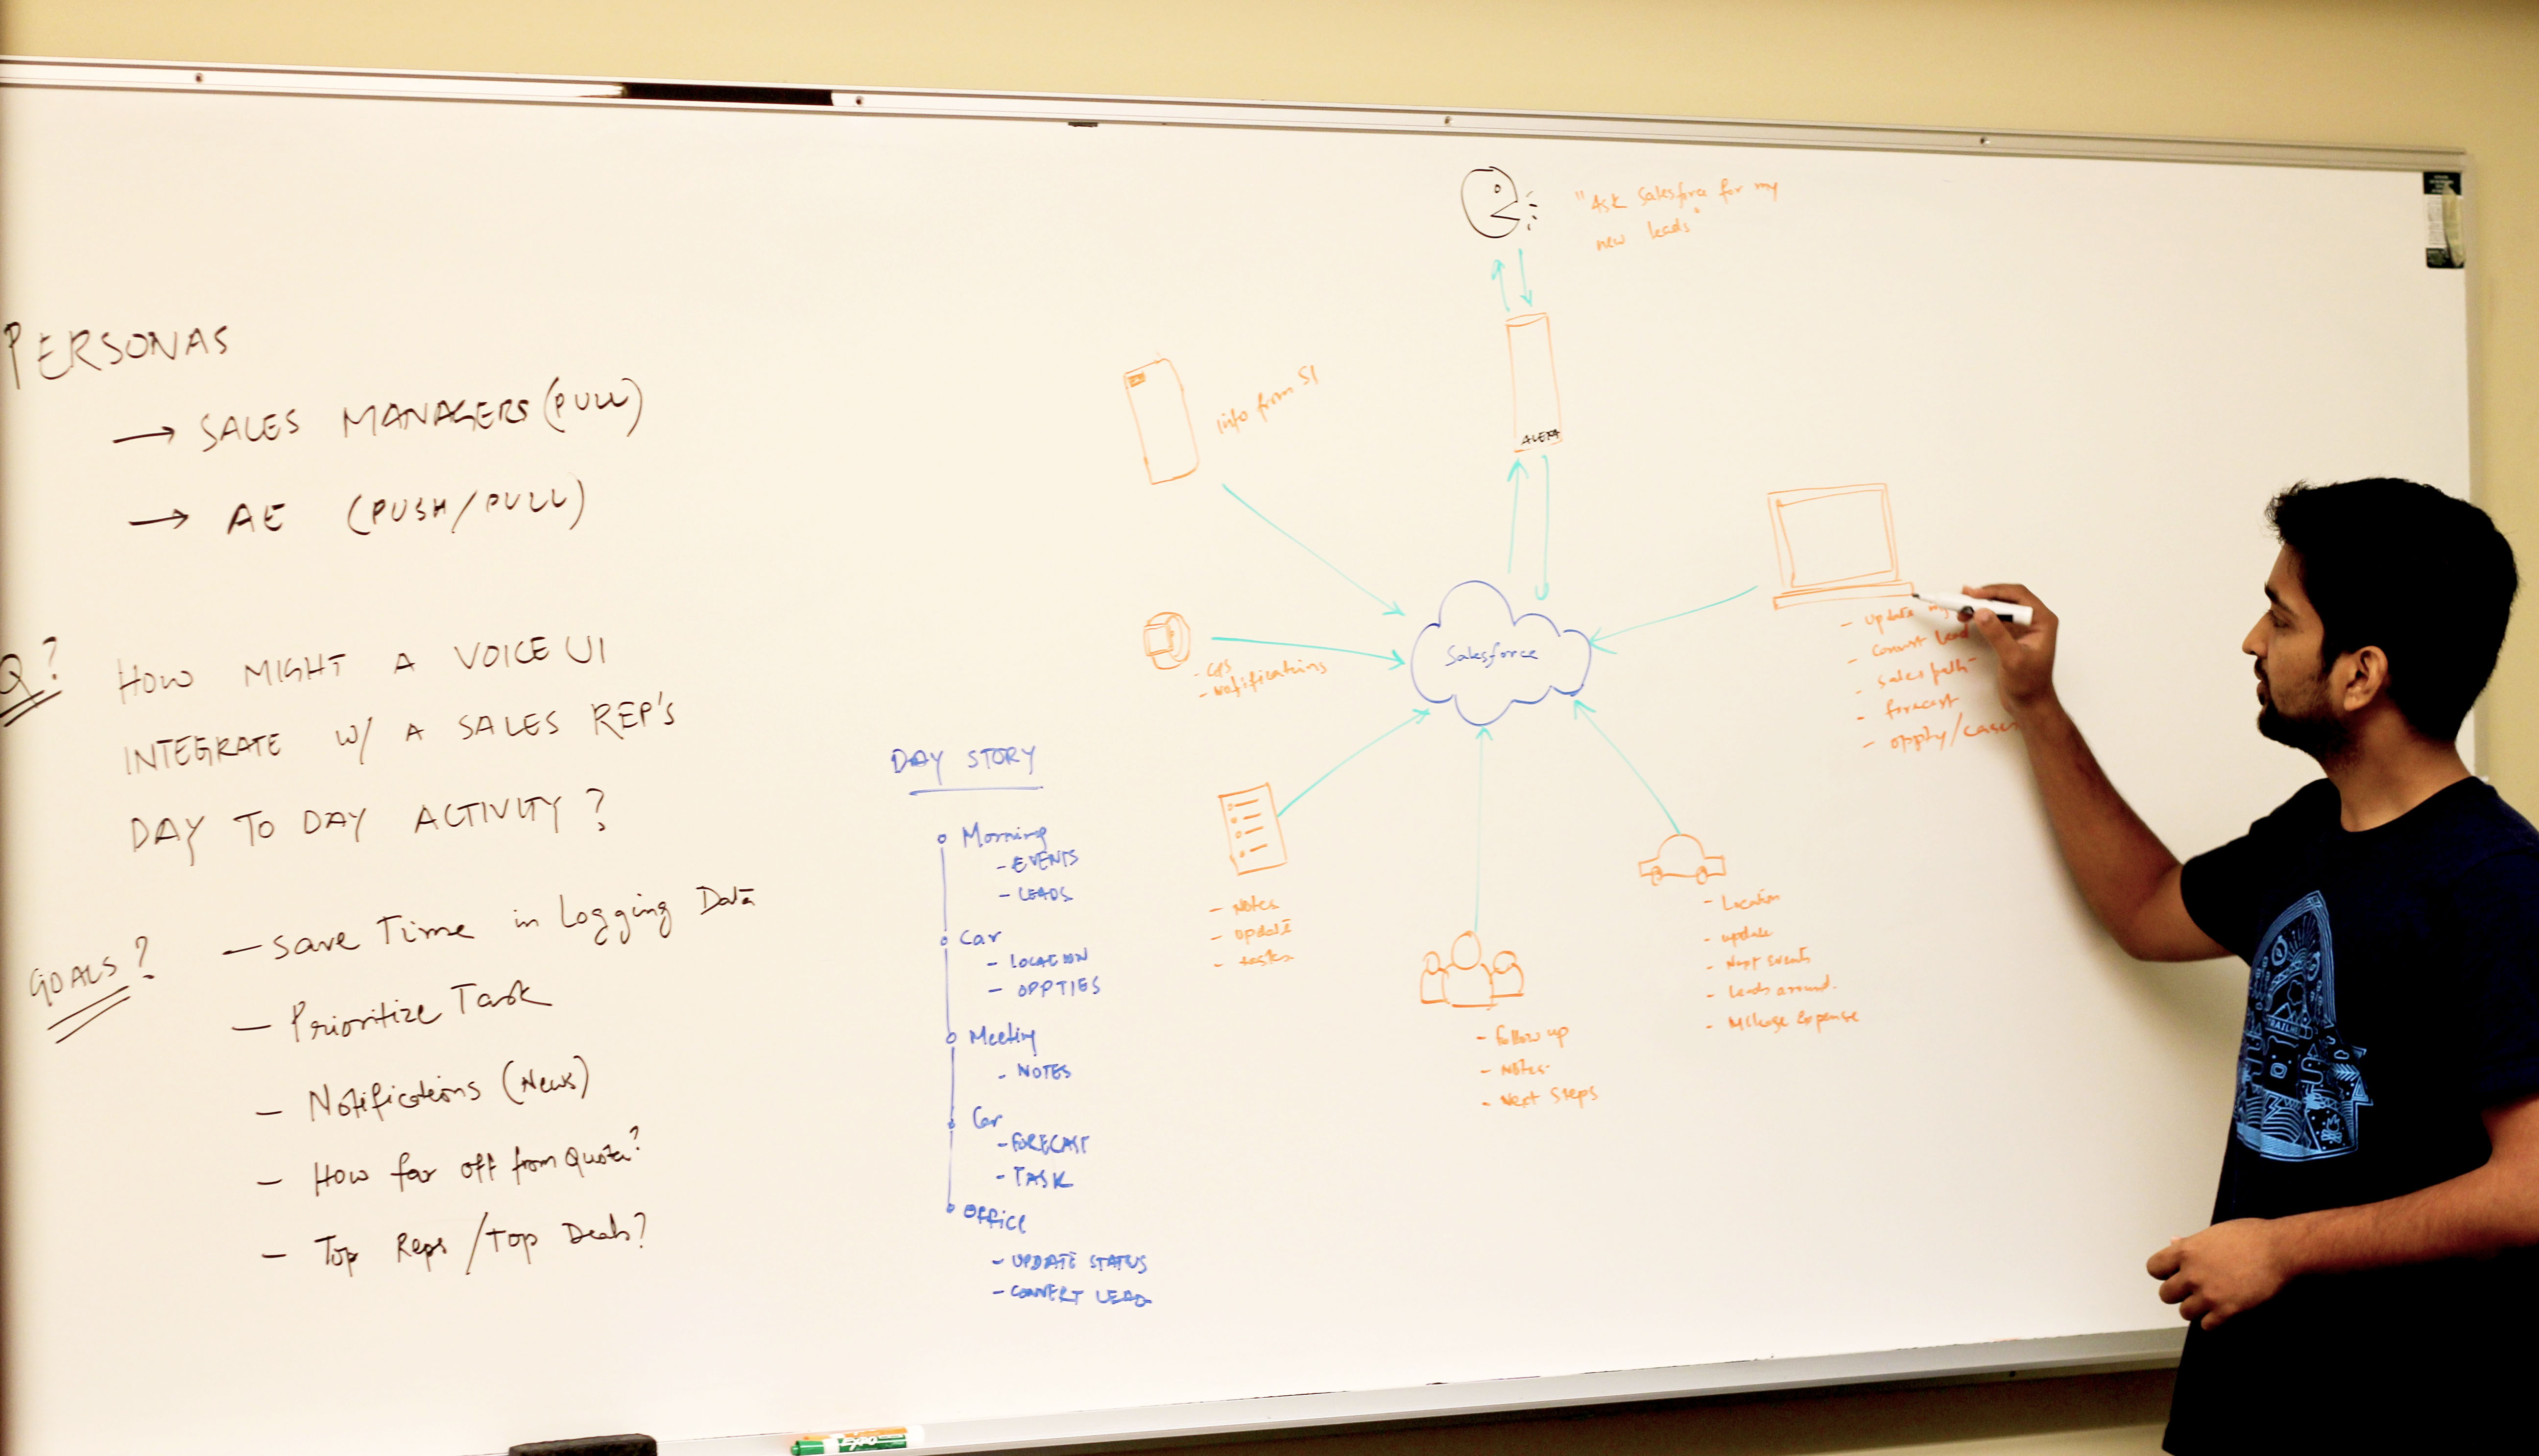 PERSONAS
→ SALES MANAGERS (PULL)
→ AE (PUSH/PULL)
Q? HOW MIGHT A VOICE UI
INTEGRATE W/ A SALES REP'S
DAY TO DAY ACTIVITY?
GOALS?
- Save Time in Logging Data
- Prioritize Task
- Notifications (News)
- How far off from Quota?
- Top Reps / Top Deals?
DAY STORY
Morning
- EVENTS
- LEADS
Car
- LOCATION
- OPPTIES
Meeting
- NOTES
Car
- FORECAST
- TASK
Office
- UPDATE STATUS
- CONVERT LEAD
"Ask Salesforce for my
new leads"
ALEXA
info from SI
Salesforce
- GPS
- Notifications
- Notes
- update
- tasks
- Follow up
- Notes
- Next Steps
- Location
- update
- Next Events
- Leads around
- Mileage Expense
- update my
- Convert lead
- Sales path
- forecast
- oppty/cases
EXPO